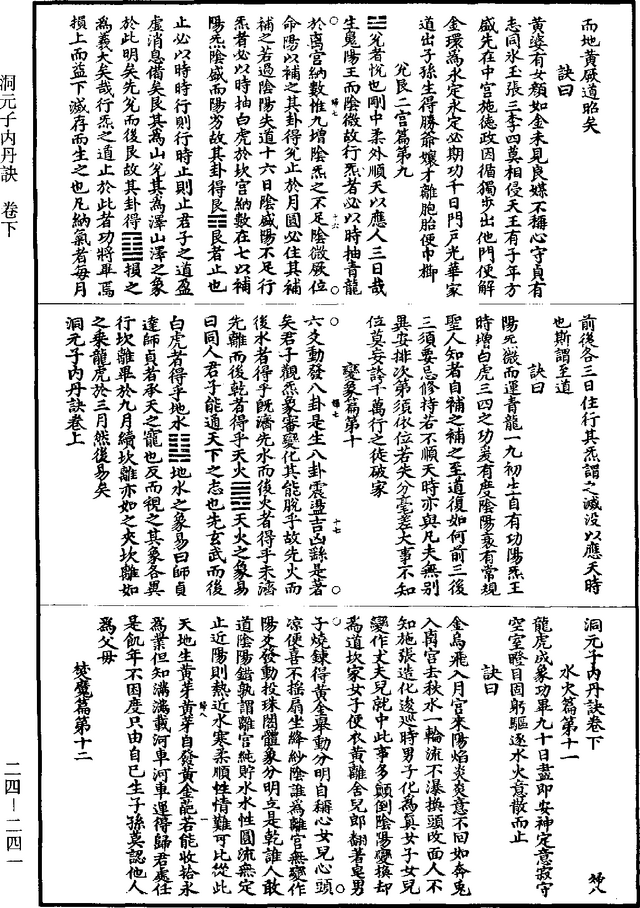 而地黃厥道昭矣
訣曰
黃婆有女顏如金未見良媒不稱心守貞有
志同水玉張三李四莫相侵天王有子年方
盛先在中宮施德政因循獨步出他門便解
金環為水定永定必期功千日門戶光華家
道出子孫生得勝爺孃才離胞胎便巾櫛
兌艮二宮篇第九
☱兌者悅也剛中柔外順天以應人三日哉
生䰟陽王而陰微故行炁者必以時抽青龍
於离宮納數惟九增陰炁之不足陰微厥位
命陽以補之其卦得兌止於月圓必住其補
補之若過陰陽失道十六日陰盛陽不足行
炁者必以時抽白虎於坎宮納數在七以補
陽炁陰盛而陽劣故其卦得艮☶艮者止也
止必以時時行則行時止則止君子之道盈
虛消息備矣艮其為山兌其為澤山澤之象
於此明矣先兌而後艮故其卦得䷨損之
為義大矣哉行炁之道止於此者功將畢焉
損上而益下減存而生之也凡納氣者每月
前後各三日住行其炁謂之減没以應天時
也斯謂至道
訣曰
陽炁微而運青龍一九初生自有功陽炁王
時增白虎三四之功炭有度陰陽衰有常規
聖人知者自補之補之至道復如何前三後
三須要忌修持若不順天時亦與凡夫無別
異安排次第須依位若失分毫差大事不知
位莫妄誇千萬行之徒破家
變象篇第十
六爻動發八卦是生八卦震盪吉凶繇是著
矣君子觀炁象審變化其能脫乎故先火而
後水者得乎既濟先水而後火者得乎未濟
先離而後乾者得乎天火䷌天火之象易
曰同人君子能通天下之志也先玄武而後
白虎者得乎地水䷆地水之象易曰師貞
達師貞者承天之寵也反而視之其象各異
行坎離畢於九月續坎離亦如之夾坎離如
之乘龍虎於三月然後易矣
洞元子內丹訣卷上
洞元子內丹訣卷下
水火篇第十一
龍虎成象功畢九十日盡即安神定意寂守
空室瞪目固躬驅逐水火意散而止
訣曰
金烏飛入月宮來陽焰炎炎意不回如奔兎
入离宮去秋水一輪流不瀑換頭改面人不
知施張造化逡巡時男子化為真女子女兒
變作丈夫兒就中此事多顛倒陰陽變換却
為道坎家女子便衣黃離舍兒郎翻著皂男
子燒鍊得黃金舉動分明自稱心女兒心頭
凉便喜不搖扇坐絳紗陰誰為離宮無變作
陽爻發動投珠閣體象分明立是乾誰人敢
道陰陽錯孰謂離宮純貯水水性圓流無定
止近陽則熱近水寒柔順性情難可比從此
天地生黃芽黃芽自發黃金葩若能收拾永
為業但知滿滿載河車河車運得歸君處任
是飢年不困度只由自己生子孫莫認他人
為父母
焚魔篇第十二
洞元子內丹訣 卷下
二四—二四一